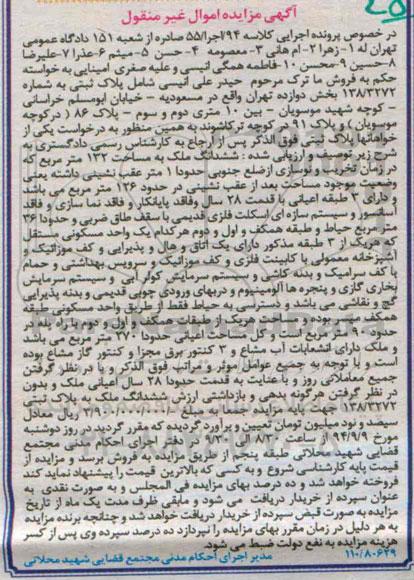 آگهی مزایده اموال غیر منقول
در خصوص پرونده اجرایی کلاسه ۹۴/اجرا/۵۵ صادره از شعبه ۱۵۱ دادگاه عمومی
تهران له ۱-زهرا ۲-ام هانی ۳-معصومه ۴-حسن ۵-میثم ۶-عذرا ۷-علیرضا
۸-حسین ۹-محسن ۱۰-فاطمه همگی انیسی و علیه صغری امینایی به خواسته
حکم به فروش ما ترک مرحوم حیدر علی انیسی شامل پلاک ثبتی به شماره
۱۳۸/۳۲۷۲ بخش دوازده تهران واقع در مسعودیه – خیابان ابومسلم خراسانی
– کوچه شهید موسویان – بین ۱۰ متری دوم و سوم – پلاک ۸۶ (درکوچه
موسویان) و پلاک ۹۱ در کوچه ترکاشوند به همین منظور به درخواست یکی از
خواهانها پلاک ثبتی فوق الذکر پس از ارجاع به کارشناس رسمی دادگستری به
شرح زیر توصیف و ارزیابی شده : ششدانگ ملک به مساحت ۱۳۲ متر مربع که
در زمان تخریب و نوسازی ازضلع جنوبی حدودا ۱ متر عقب نشینی داشته یعنی
وضعیت موجود مساحت بعد از عقب نشینی در حدود ۱۲۶ متر مربع می باشد
و دارای ۳ طبقه اعیانی با قدمت ۲۸ سال وفاقد پایانکار و فاقد نما سازی و فاقد
آسانسور و سیستم سازه ای اسکلت فلزی قدیمی با سقف طاق ضربی و حدودا ۳۶
متر مربع حیاط و طبقه همکف و اول و دوم هرکدام یک واحد مسکونی مستقل
که هریک از ۳ طبقه مذکور دارای یک اتاق و هال و پذیرایی و کف موزائیک و
آشپزخانه معمولی با کابینت فلزی و کف موزائیک و سرویس بهداشتی و حمام
با کف سرامیک و بدنه کاشی و سیستم سرمایش کولر آبی و سیستم سرمایش
بخاری گازی و پنجره ها آلومینیوم و دربهای ورودی چوبی قدیمی و بدنه پذیرایی
گچ و نقاشی می باشد و دسترسی به حیاط فقط از طریق واحد مسکونی طبقه
همکف میسر بوده و مساحت هریک از طبقات همکف و اول و دوم با راه پله در
حدود ۹۰ متر مربع است و کل مساحت اعیانی حدودا ۲۷۰ متر مربع می باشد
و ملک دارای انشعابات آب مشاع و ۳ کنتور برق مجزا و کنتور گاز مشاع بوده
است و با توجه به جمیع عوامل موثر و مراتب فوق الذکر و با در نظر گرفتن
جمیع معاملاتی روز و با عنایت به قدمت حدودا ۲۸ سال اعیانی ملک و بدون
در نظر گرفتن هرگونه بدهی و بازداشتی ارزش ششدانگ ملک به پلاک ثبتی
۱۳۸/۳۲۷۲ جهت پایه مزایده جمعا به مبلغ ۳/۹۰۰/۰۰۰/۰۰۰ ریال معادل
سیصد و نود میلیون تومان تعیین و برآورد گردیده که مقرر گردید در روز دوشنبه
مورخ ۹۴/۹/۹ ساعت ۸/۳۰ الی ۹/۳۰ در دفتر اجرای احکام مدنی مجتمع
قضایی شهید محلاتی طبقه پنجم از طریق مزایده به فروش برسد و مزایده از
قیمت پایه کارشناسی شروع و به کسی که بالاترین قیمت را پیشنهاد نماید کند
فروخته خواهد شد و ده درصد بهای مزایده فی المجلس و به صورت نقدی به
عنوان سپرده از خریدار دریافت می شود و مابقی ظرف مدت یک ماه از تاریخ
مزایده به صورت قبض سپرده از خریدار دریافت خواهد شد و چنانچه برنده مزایده
به هر دلیل در زمان مقرر بهای مزایده را نپردازد ده درصد سپرده وی پس از کسر
هزینه مزایده به نفع دولت ضبط می شود
۱۱۰/۸۰۶۲۹ مدیر اجرای احکام مدنی مجتمع قضایی شهید محلاتی